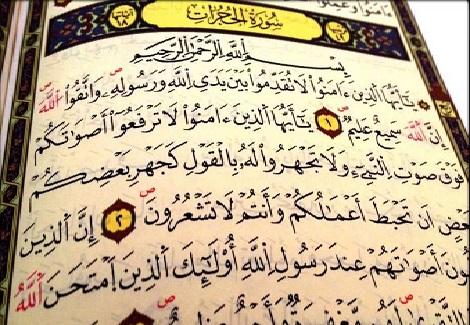 ءَامَنُوا۟ وَعَمِلُوا۟
١٨
سُورَةُ الْحُجُرَاتِ
بِسْمِ اللَّهِ الرَّحْمَٰنِ الرَّحِيمِ
يَٰٓأَيُّهَا الَّذِينَ ءَامَنُوا۟ لَا تُقَدِّمُوا۟ بَيْنَ يَدَىِ اللَّهِ وَرَسُولِهِۦ وَاتَّقُوا۟ اللَّهَ
إِنَّ اللَّهَ سَمِيعٌ عَلِيمٌ ١ يَٰٓأَيُّهَا الَّذِينَ ءَامَنُوا۟ لَا تَرْفَعُوٓا۟ أَصْوَٰتَكُمْ
فَوْقَ صَوْتِ النَّبِىِّ وَلَا تَجْهَرُوا۟ لَهُۥ بِالْقَوْلِ كَجَهْرِ بَعْضِكُمْ
أَن تَحْبَطَ أَعْمَٰلُكُمْ وَأَنتُمْ لَا تَشْعُرُونَ ٢ إِنَّ الَّذِينَ
أَصْوَٰتَهُمْ عِندَ رَسُولِ اللَّهِ أُو۟لَٰٓئِكَ الَّذِينَ امْتَحَنَ اللَّهُ